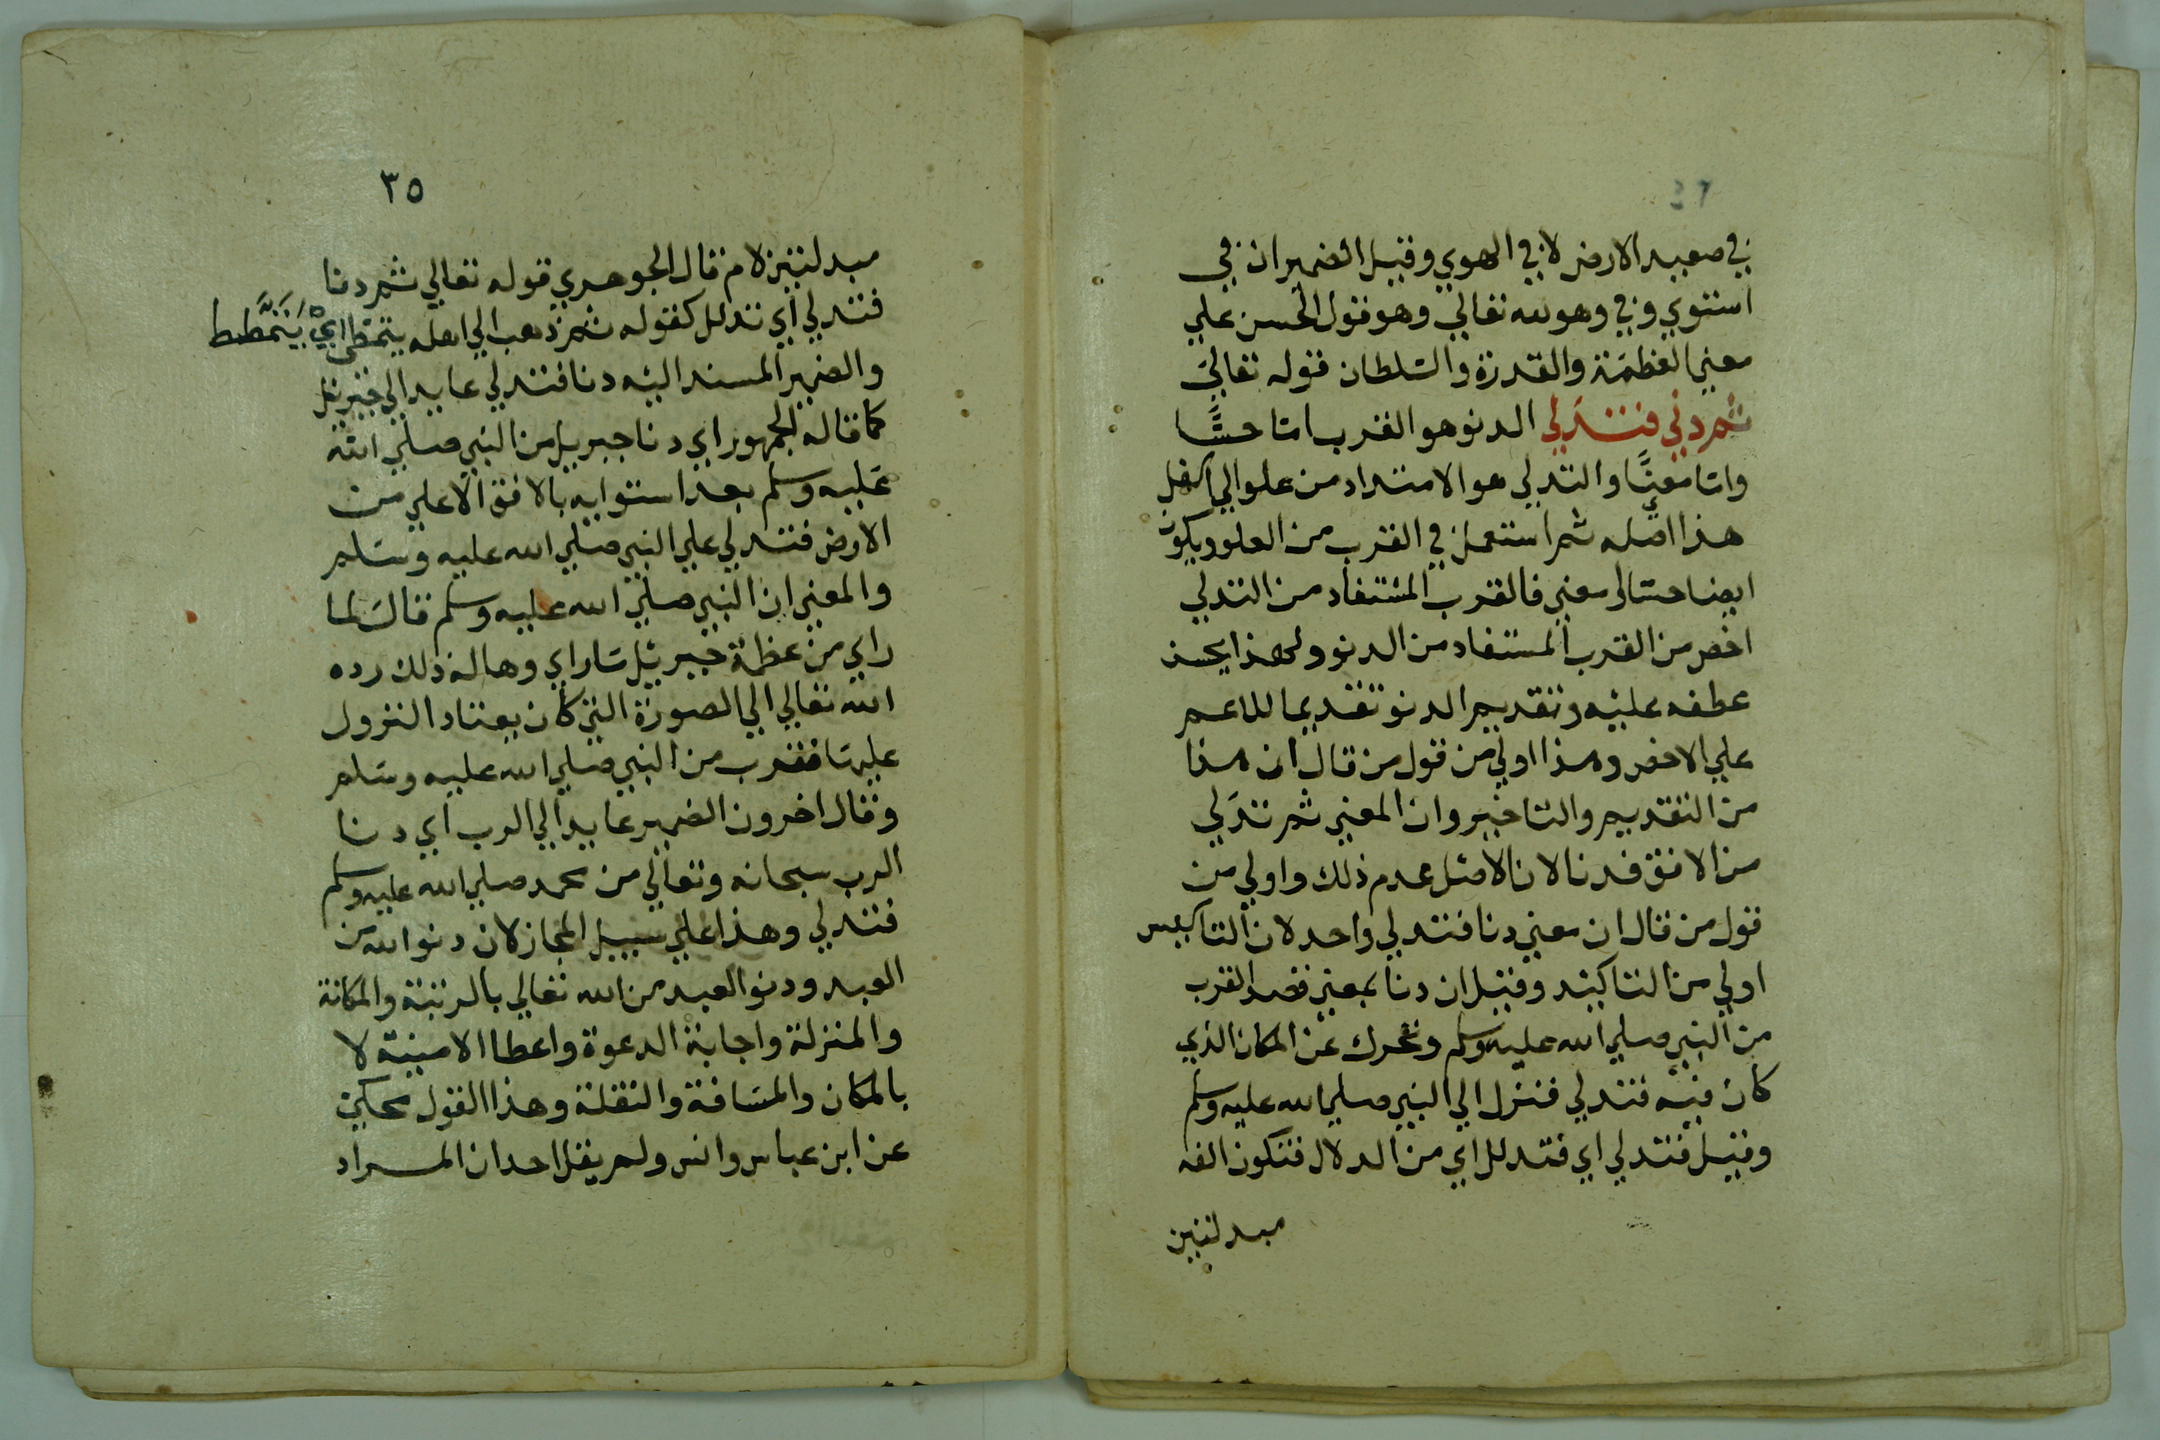 في صعيد الارض لا في الهوي وقيل الضميران في
استوي وفي وهو لله تعالي وهو قول الحسن علي
معني العظمة والقدرة والسلطان قوله تعالي
ثم دني فتدلي الدنو هو القرب اما حسًّا
واما معنًي والتدلي هو الامتداد من علو الي اسفل
هذا اصله ثم استعمل في القرب من العلو ويكون
ايضا حسا لي معني فالقرب المستفاد من التدلي
اخص من القرب المستفاد من الدنو ولهذا يحسن
عطفه عليه وتقديم الدنو تقديما للاعم
علي الاخص وهذا اولي من قول من قال ان هذا
من التقديم والتاخير وان المعني ثم تدلي
من الافق فدنا لان الاصل عدم ذلك واولي من
قول من قال ان معني دنا فتدلي واحد لان التاسيس
اولي من التاكيد وقيل ان دنا بمعني قصد القرب
من النبي صلي الله عليه وسلم وتحرك عن المكان الذي
كان فيه فتدلي فنزل الي النبي صلي الله عليه وسلم
وقيل فتدلي اي فتدلل اي من الدلال فتكون الفه
مبدلة من
٣٥
مبدلة من لام قال الجوهري قوله تعالي ثم دنا
فتدلي اي تدلل كقوله ثم ذهب الي اهله يتمطي اي يَتَمَطَّط
والضمير المسند اليه دنا فتدلي عايد الي جبريل
كما قاله الجمهور اي دنا جبريل من النبي صلي الله
عليه وسلم بعد استوايه بالافق الاعلي من
الارض فتدلي علي النبي صلي الله عليه وسلم
والمعني ان النبي صلي الله عليه وسلم قال لما
راي من عظمة جبريل ما راي وهاله ذلك رده
الله تعالي الي الصورة التي كان يعتاد النزول
عليها فقرب من النبي صلي الله عليه وسلم
وقال اخرون الضمير عايد الي الرب اي دنا
الرب سبحانه وتعالي من محمد صلي الله عليه وسلم
فتدلي وهذا علي سبيل المجاز لان دنو الله من
العبد ودنو العبد من الله تعالي بالرتبة والمكانة
والمنزلة واجابة الدعوة واعطا الامنية لا
بالمكان والمسافة والنقلة وهذا القول محكي
عن ابن عباس وانس ولم يقل احد ان المراد